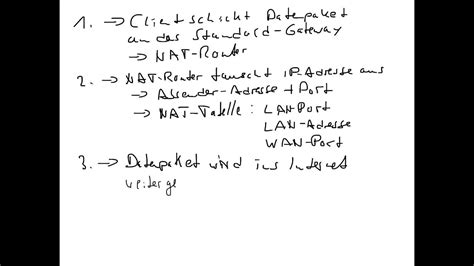 1. → Client schickt Datenpaket
an das Standard-Gateway
→ NAT-Router
2. → NAT-Router tauscht IP-Adresse aus
→ Absender-Adresse + Port
→ NAT-Tabelle: LAN-Port
LAN-Adresse
WAN-Port
3. → Datenpaket wird ins Internet
weiterge